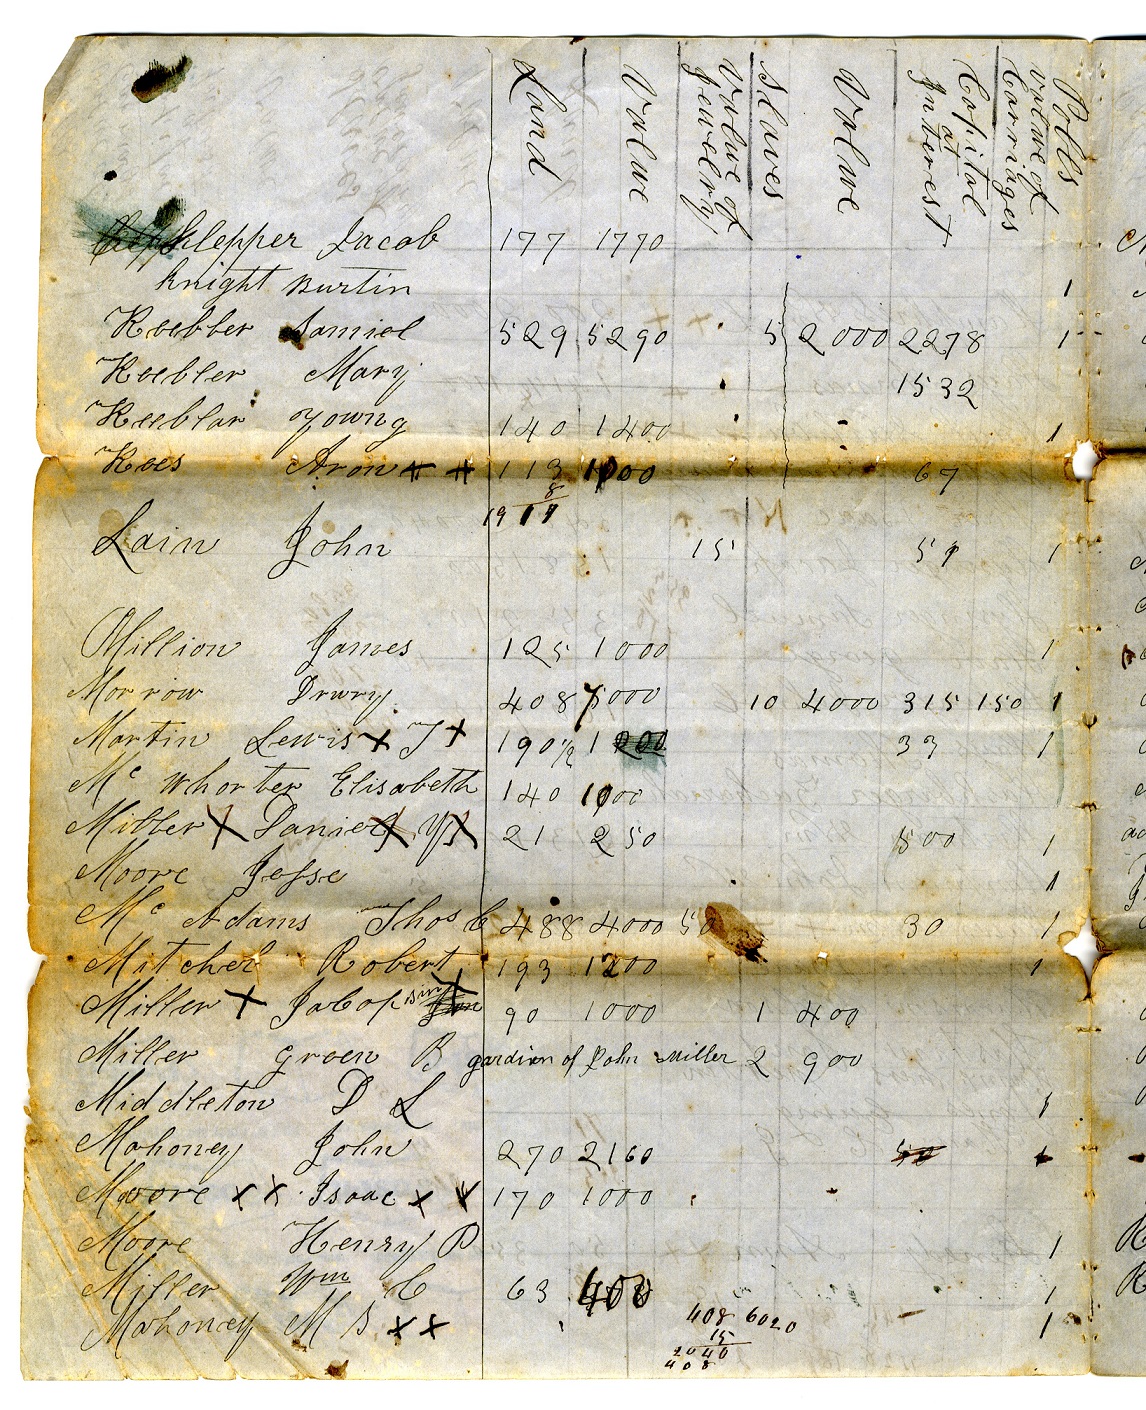 Land
Value
Value of Jewelry
Slaves
Value
Capital at Interest
Value of Carriages
Polls
Klepper Jacob 177 1770
Knight Burtin 1
Keebber Samiel 529 5290 5 2000 2278 1
Keebler Mary 1532
Keeblar Young 140 1400 1
Kees Aron 113 1000 67
8
19 
Lain John 15 51 1
Million James 125 1000 1
Morrow Drury 408 7000 10 4000 315 150 1
Martin Lewis T 190 1/2 1200 33 1
Mc Whorter Elisabeth 140 1000
Miller Daniel 21 250 500 1
Moore Jesse 1
Mc Adams Thos C 488 4000 50 30 1
Mitchel Robert 193 1200 1
Miller Jacob 90 1000 1 400
Miller Green B gardien of John Miller 2 900
Middleton D L 1
Mahoney John 270 2160
Moore Isaac 170 1000
Moore Henry P 1
Miller Wm C 63 408 1
Mahoney M S 1
408 6020
15
2040
408